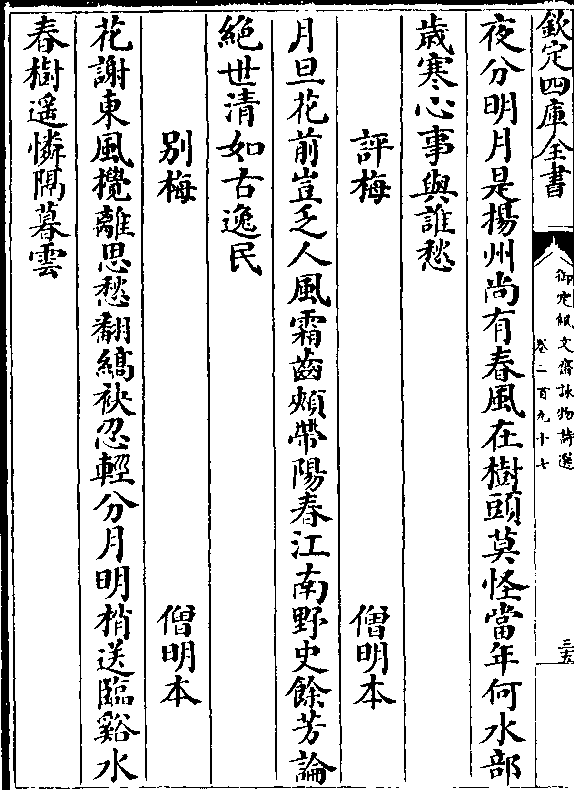 欽定四庫全書
御定佩文齋詠物詩選
卷二百九十七
三五
夜分明月是揚州尚有春風在樹頭莫怪當年何水部
歲寒心事與誰愁
評梅
僧明本
月旦花前豈乏人風霜齒頰帶陽春江南野史餘芳論
絕世清如古逸民
別梅
僧明本
花謝東風攪離思愁翻縞袂忍輕分月明梢送臨谿水
春樹遥憐隔暮雲